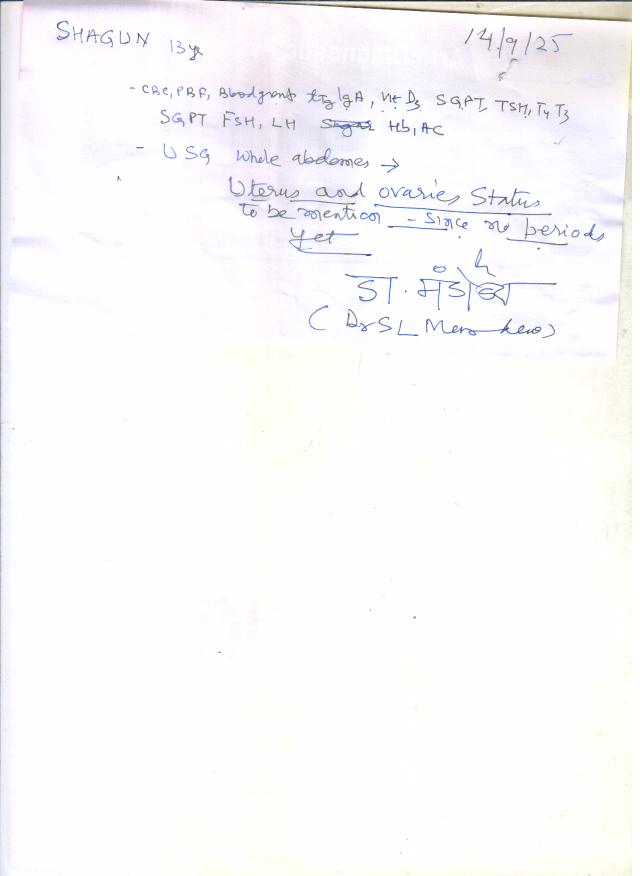 SHAGUN 13 yr 14/9/25
- CBC, PBF, Bloodgroup tTg IgA, Vit D3 SGPT, TSH, T4 T3
SGPT FSH, LH Sugar Hb, AC
- USG whole abdomen →
Uterus and ovaries Status
to be mention - Since no periods
yet
डा.
(Dr S L